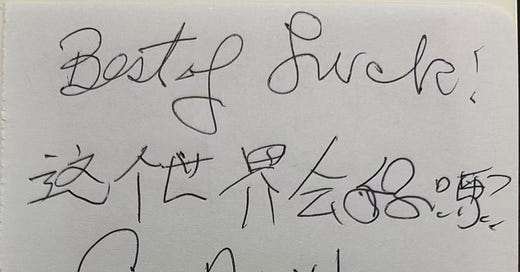 Best of Luck!
这个世界会好嗎?